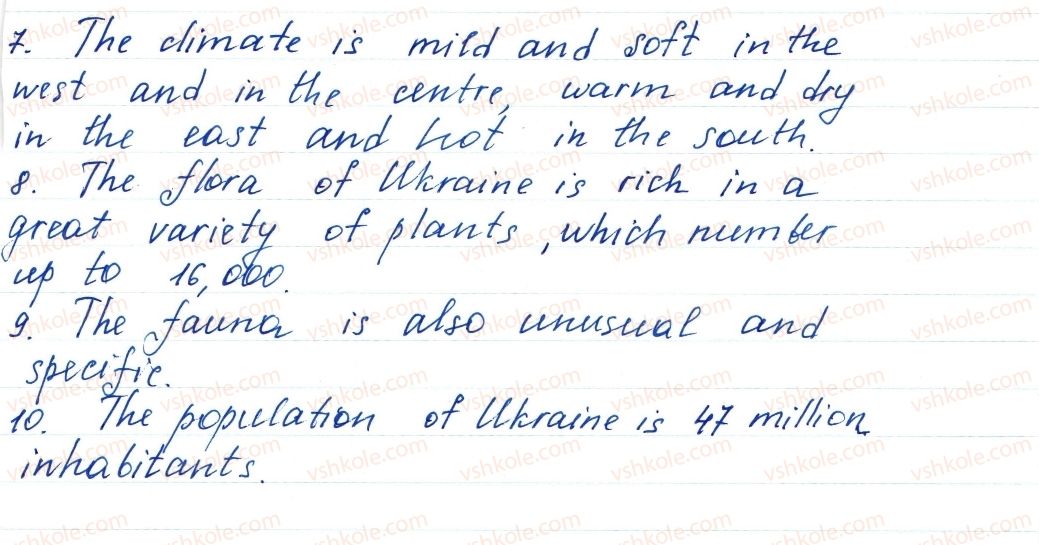 7. The climate is mild and soft in the
west and in the centre, warm and dry
in the east and hot in the south.
8. The flora of Ukraine is rich in a
great variety of plants, which number
up to 16,000.
9. The fauna is also unusual and
specific.
10. The population of Ukraine is 47 million
inhabitants.